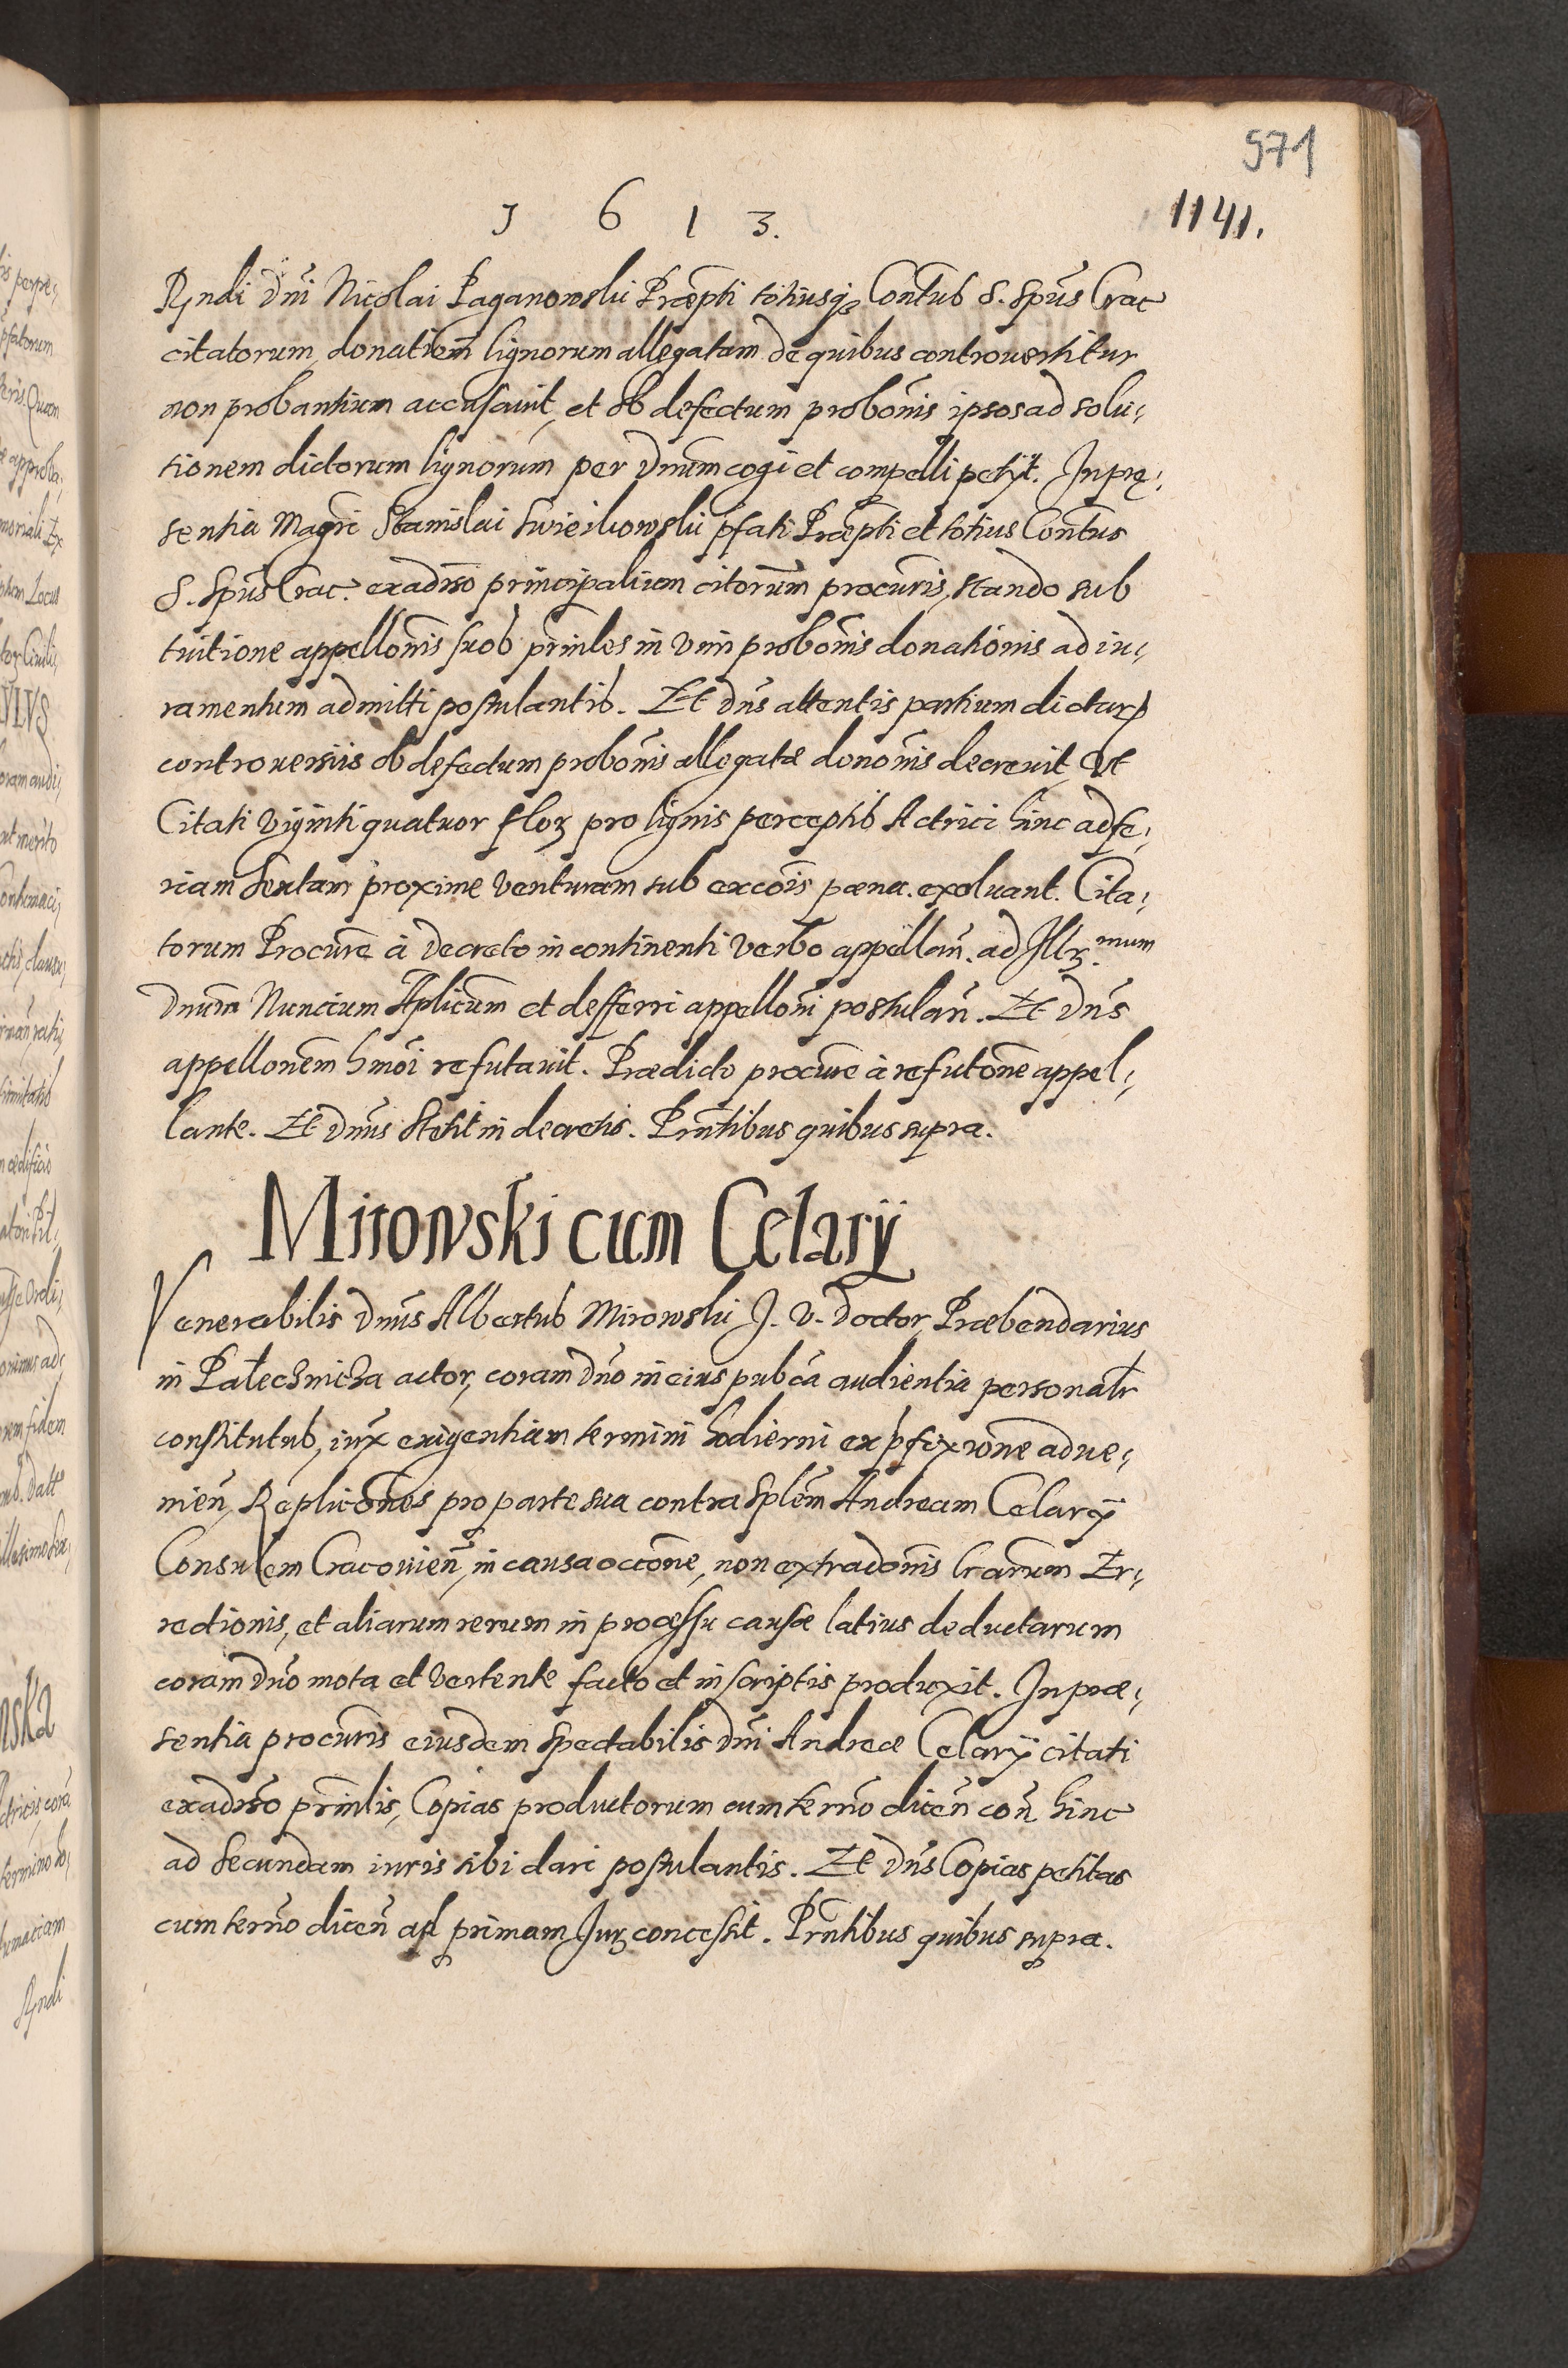 571
1 6 1 3.
1141.
Rndi dni Nicolai Paganowski Præpti totiusq₃ Contus S. Spūs Crac
citatorum, donatiem̄ lignorum allegatam de quibus controvertitur
non probantium accusavit, et ob defectum probōnis ipsos ad solu¿
tionem dictorum lignorum per Dnum cogi et compelli petÿt. In prę¿
sentia Magri Stanislai Swieikowski pfati Præpti et totius Contus
S. Spūs Crac. ex adv̄so principalium citorum procuris, stando sub
tuitione appellōnis suos prin̄les in vim probōnis donatiōnis ad iu¿
ramentum admitti postulantis. Et Dn̄s attentis partium dictarꝝ
controversiis ob defectum probōnis allegatæ donōnis decrevit, Ut
Citati viginti quatuor floꝝ pro lignis perceptis Actrici hinc ad fe¿
riam Sextam proxime venturam sub excōis pœna. exolvant. Cita¿
torum Procurē à decreto in continenti verbo appellan̄. ad Illꝫ.mum
Dnum Nuncium Aplicum et defferri appellōni postulan̄. Et Dn̄s
appellonem hm̄oi refutavit. Prædicto procurē à refutōne appel¿
lante. Et Dn̄us stetit in decretis. Prn̄tibus quibus supra.
Mirowski cum Celarÿ
Venerabilis Dn̄us Albertus Mirowski J. V. Doctor, Præbendarius
in Palechnicza actor, coram Dn̄o in eius pubca audientia personalr
constitutus, iux exigentiam termini hodierni ex pfixiōne adve¿
nien̄, Replicōnes pro parte sua contra Splem̄ Andream Celarÿ
Consulem Cracovien̄, in causa occōne, non extradōnis lrarum Er¿
rectionis, et aliarum rerum in processu causæ latius deductarum
coram Dn̄o mota et vertente facto et in scriptis produxit. In præ¿
sentia procuris eiusdem Spectabilis Dn̄i Andreæ Celarÿ citati
ex adv̄so prin̄lis, Copias productorum cum termo dicen̄ con̄ hinc
ad Secundam iuris sibi dari postulantis. Et Dn̄s Copias petitas
cum termo dicen̄ ad primam Jurꝫ concessit. Prn̄tibus quibus supra.